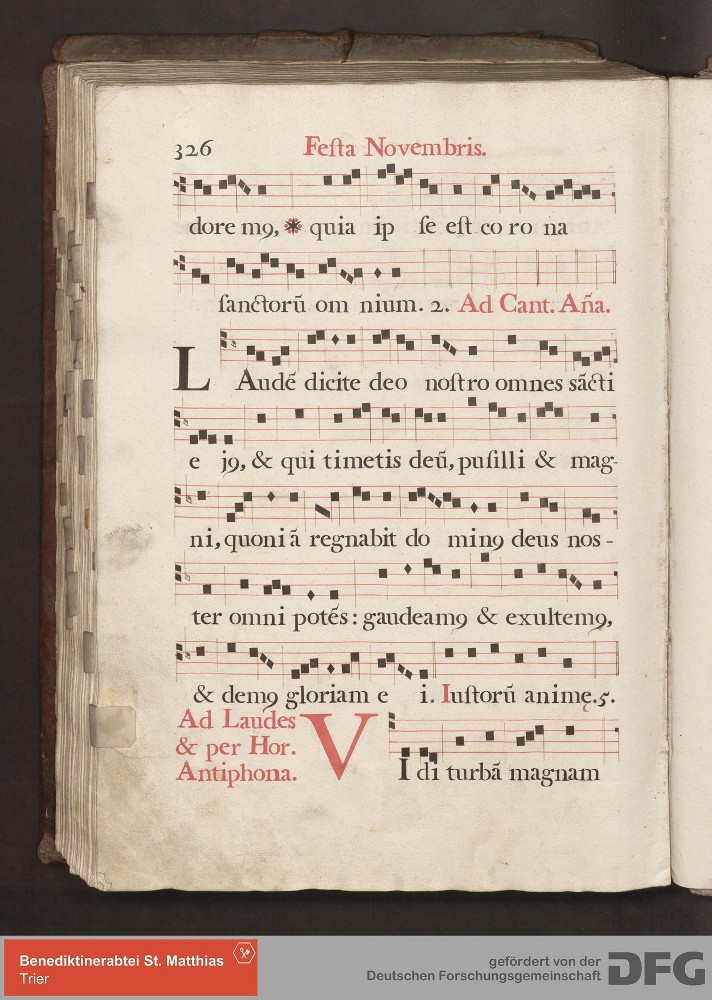 326 Feſta Novembris.
dore m9, * quia ip ſe eſt co ro na
ſanctorũ om nium. 2. Ad Cant. Aña.
L Audẽ dicite deo noſtro omnes sãcti
e j9, & qui timetis deũ, puſilli & mag-
ni, quoni ã regnabit do min9 deus nos-
ter omni potẽs : gaudeam9 & exultem9,
& dem9 gloriam e i. Iuſtorũ animę. 5.
Ad Laudes
& per Hor.
Antiphona.
V I di turbã magnam
Benediktinerabtei St. Matthias
Trier
gefördert von der
Deutschen Forschungsgemeinschaft
DFG